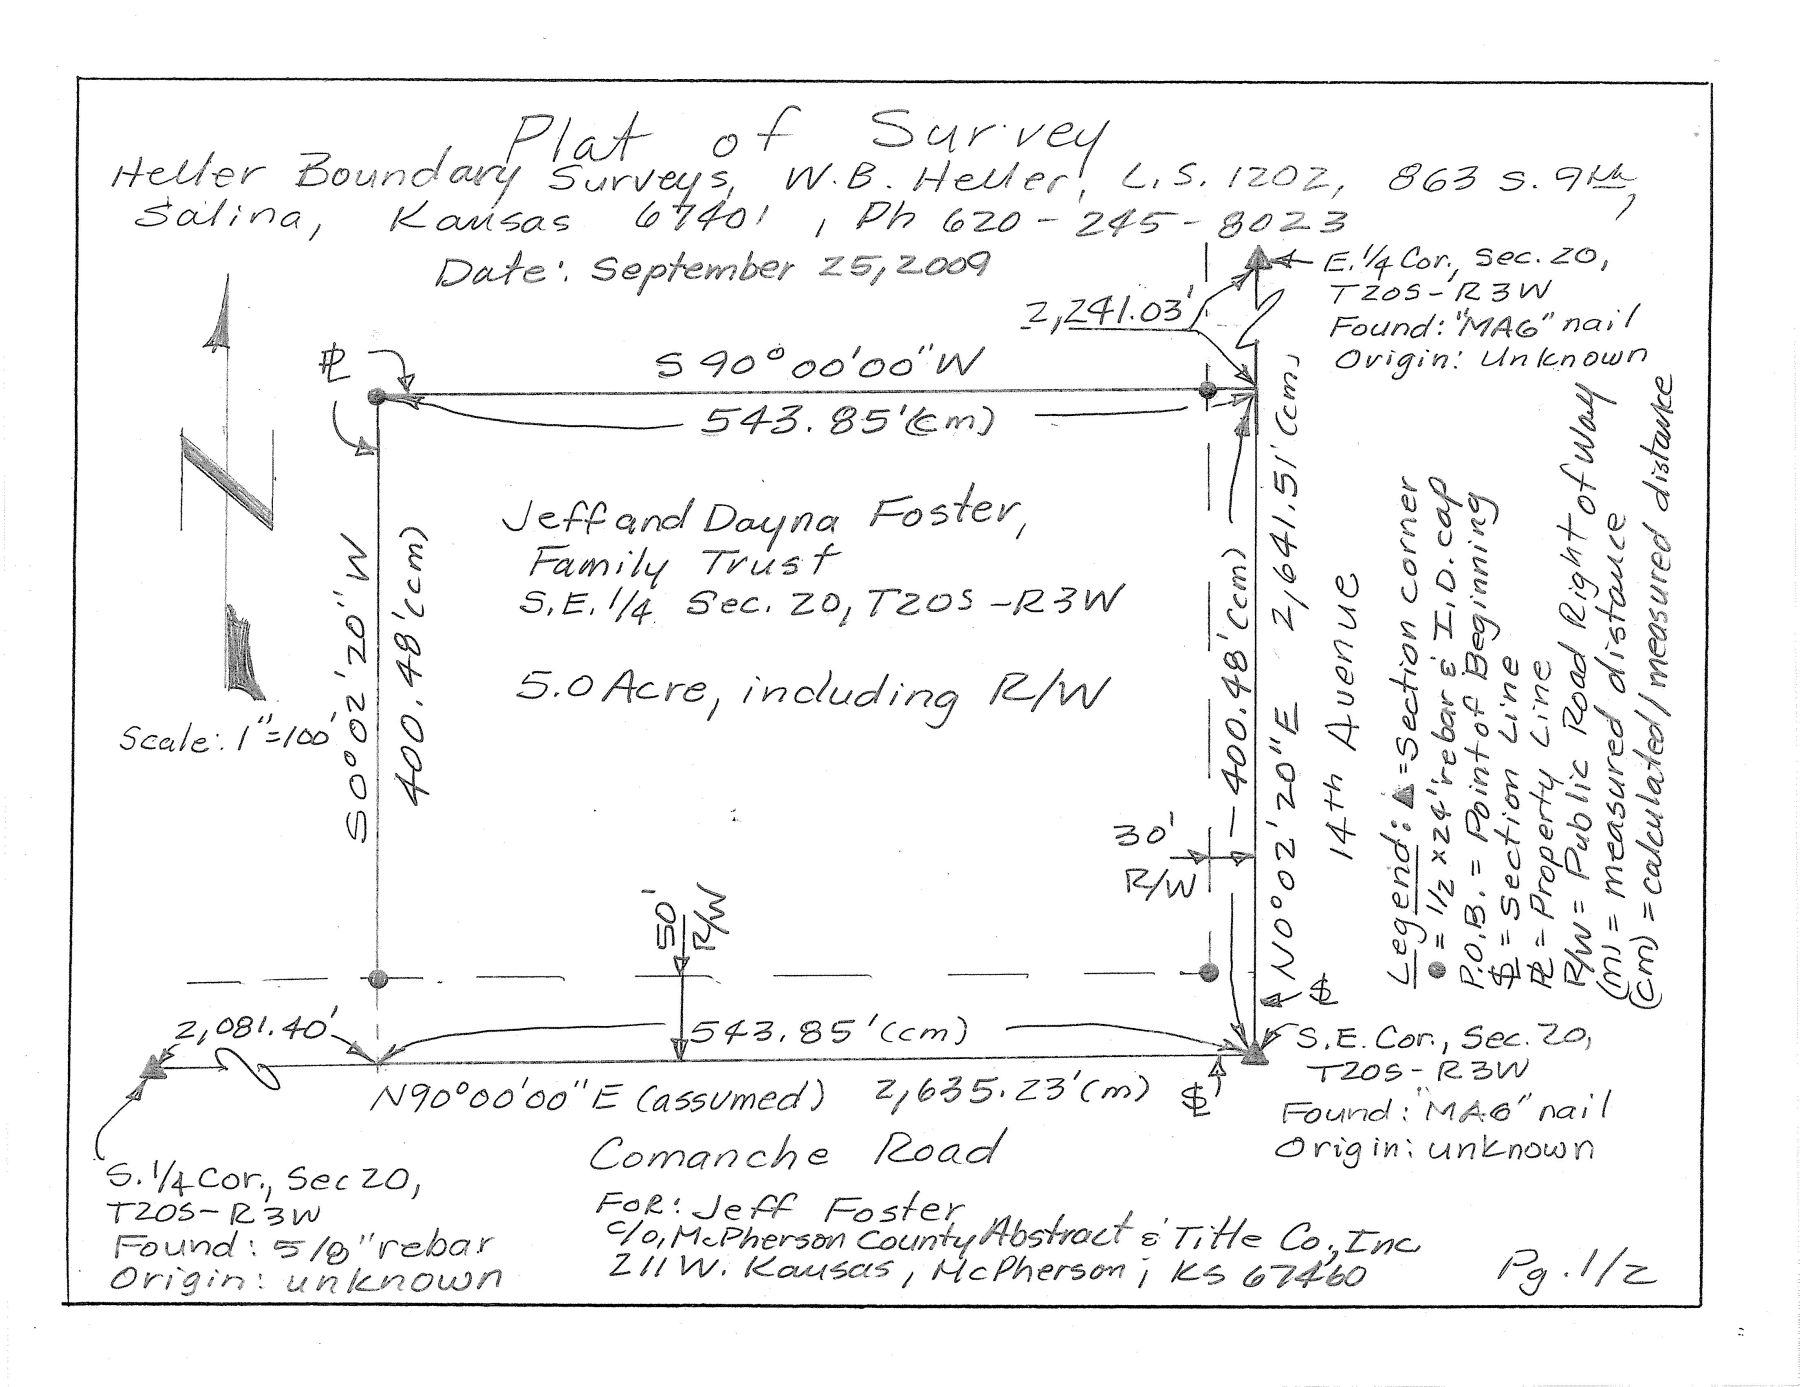 Plat of Survey
Heller Boundary Surveys, W.B. Heller, L.S. 1202, 863 S. 9th,
Salina, Kansas 67401, Ph 620-245-8023
Date: September 25, 2009
E. 1/4 Cor., Sec. 20,
T20S-R3W
Found: "MAG" nail
Origin: Unknown
2,241.03'
PL
S 90°00'00" W
543.85' (cm)
Jeff and Dayna Foster,
Family Trust
S.E. 1/4 Sec. 20, T20S-R3W
5.0 Acre, including R/W
Scale: 1"=100'
S0°02'20"W
400.48' (cm)
400.48' (cm)
N0°02'20"E 2,641.51' (cm)
14th Avenue
Legend: ▲=Section corner
●=1/2 x 24" rebar & I.D. cap
P.O.B. = Point of Beginning
SL = Section Line
PL = Property Line
R/W = Public Road Right of Way
(m) = measured distance
(cm) = calculated/measured distance
30'
R/W
50'
R/W
SL
2,081.40'
543.85' (cm)
N90°00'00"E (assumed) 2,635.23' (m) SL
S.E. Cor., Sec. 20,
T20S-R3W
Found: "MAG" nail
Origin: unknown
Comanche Road
S. 1/4 Cor., Sec 20,
T20S-R3W
Found: 5/8" rebar
Origin: unknown
FOR: Jeff Foster
c/o, McPherson County Abstract & Title Co., Inc
211 W. Kansas, McPherson, KS 67460
Pg. 1/2